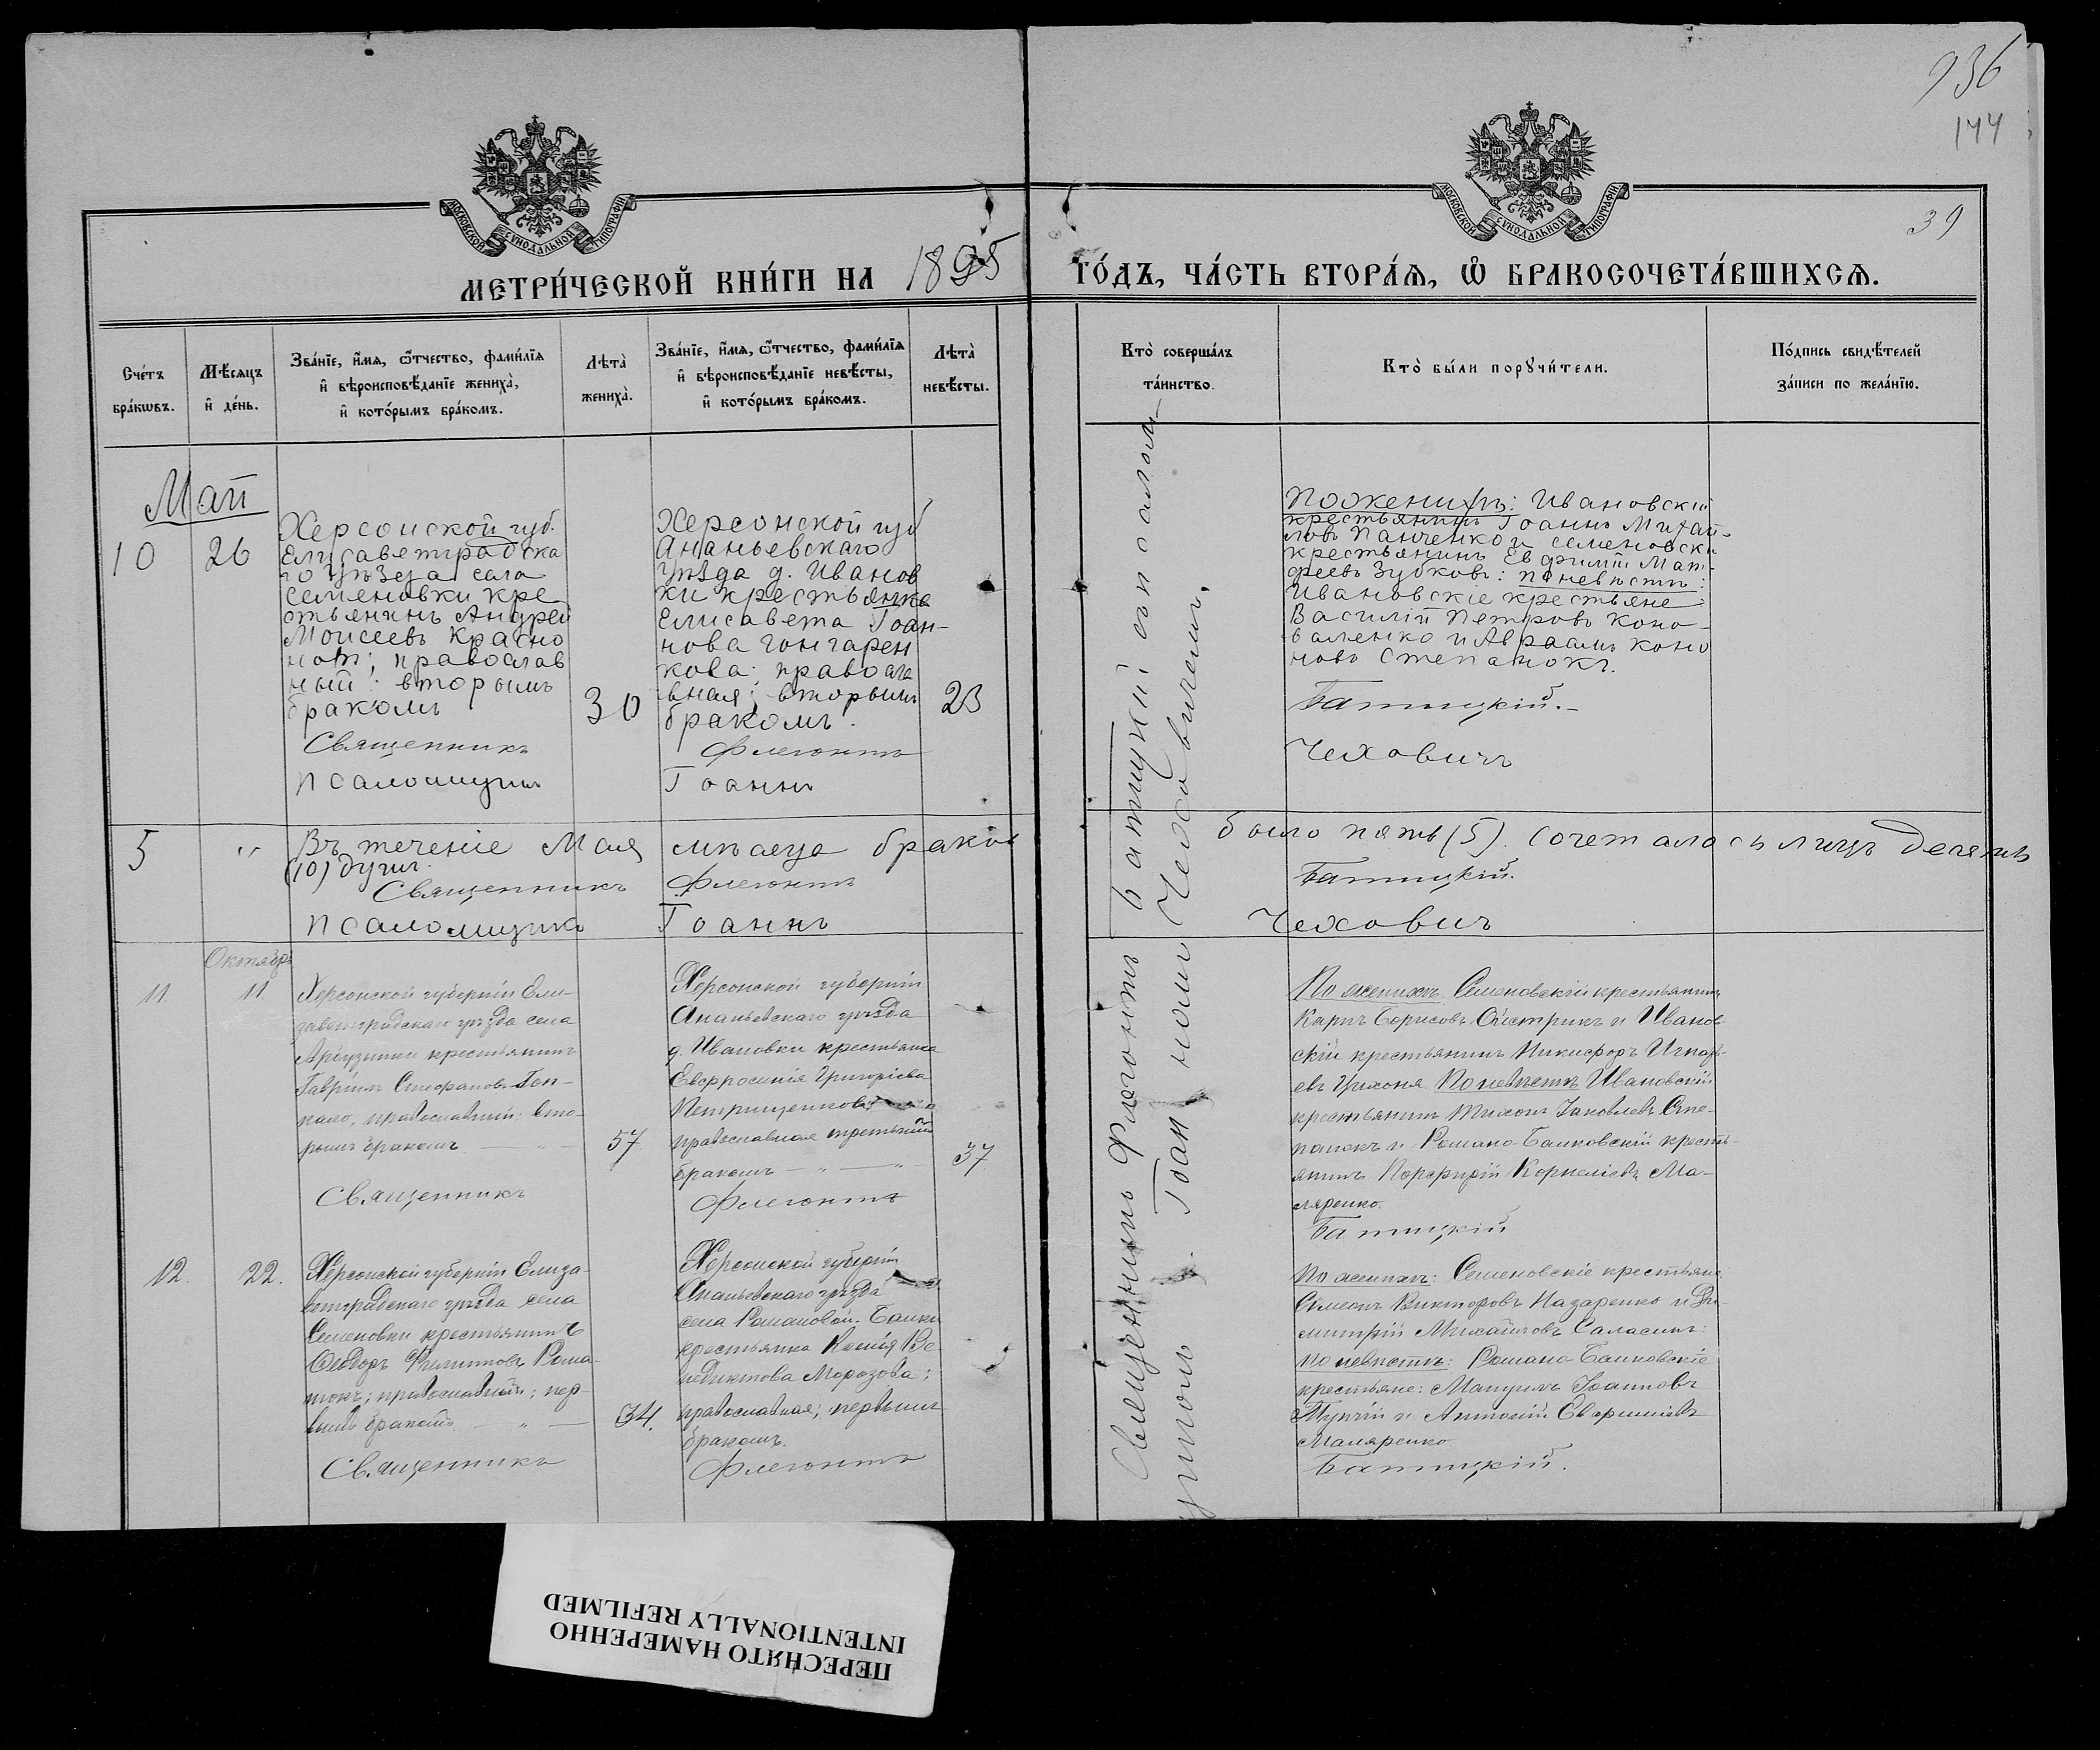 936
144
39
МОСКОВСКОЙ СѴНОДАЛЬНОЙ ТИПОГРАФІИ
МОСКОВСКОЙ СѴНОДАЛЬНОЙ ТИПОГРАФІИ
МЕТРИ́ЧЕСКОЙ КНИ́ГИ НА 1895 ГО́ДЪ, ЧА́СТЬ ВТОРА́Ѧ, Ѽ БРАКОСОЧЕТА́ВШИХСѦ.
Сче́тъ бра́кѡвъ.
Мѣ́сяцъ и҆ де́нь.
Зва́нїе, и҆́мѧ, ѻ҆́тчество, фами́лїѧ
и҆ вѣроисповѣ́данїе жениха̀,
и҆ кото́рымъ бра́комъ.
Лѣта̀ жениха̀.
Зва́нїе, и҆́мѧ, ѻ҆́тчество, фами́лїѧ
и҆ вѣроисповѣ́данїе невѣ́сты,
и҆ кото́рымъ бра́комъ.
Лѣта̀ невѣ́сты.
Кто̀ соверша́лъ та́инство.
Кто̀ бы́ли порꙋчи́тели.
По́дпись свидѣ́телей за́писи по жела́нїю.
Май
10
26
Херсонской губ.
Елисаветградска
го уѣзда села
Семеновки кре
стьянинъ Андрей
Моисеевъ Красно
нот; православ
ный: вторымъ
бракомъ
30
Херсонской губ
Ананьевскаго
уѣзда д. Иванов
ки крестьянка
Елисавета Іоан-
нова Гончарен
кова; правосла
вная; вторымъ
бракомъ.
23
Поженихѣ: Ивановскій
крестьянинъ Іоаннъ Михай-
ловъ Панченко и семеновскій
крестьянинъ Евфимій Мат-
феевъ Зубковъ: поневѣстѣ:
Ивановскіе крестьяне
Василій Петровъ Коно-
валенко и Авраамъ Коно
новъ Степанокъ.
Священникъ Флегонтъ Батицкій.
псаломщикъ Іоаннъ Чеховичъ
5
"
Въ теченіе Мая мѣсяца браковъ было пять (5). Сочеталось лицъ десять
(10) душъ.
Священникъ Флегонтъ Батицкій.
псаломщикъ Іоаннъ Чеховичъ
Священникъ Флегонтъ Батицкій съ псалом-
щикомъ Іоанномъ Чеховичемъ.
Октябрь
11
11
Херсонской губерніи Ели-
заветградскаго уѣзда села
Арбузинки крестьянинъ
Гавріилъ Стефановъ
православный: вто-
рымъ бракомъ
57
Херсонской губерніи
Ананьевскаго уѣзда
д. Ивановки крестьянка
Евфросинія Григоріева
Петрищенкова
православная третьимъ
бракомъ
37
По женихѣ. Семеновскій крестьянинъ
Карпъ Борисовъ и Иванов-
скій крестьянинъ Никифоръ Игнать-
евъ По невѣстѣ Ивановскій
крестьянинъ Тихонъ Іаковлевъ Сте-
панокъ и Романо-Балковскій кресть-
янинъ Порфирій Корниліевъ Ма-
ляренко.
Священникъ Флегонтъ Батицкій
12.
22.
Херсонской губерніи Елиза-
ветградскаго уѣзда села
Семеновки крестьянинъ
Ѳеодоръ Филипповъ Рома-
нюкъ; православный; пер-
вымъ бракомъ
34.
Херсонской губерніи
Ананьевскаго уѣзда
села Романовой-Балки
крестьянка Ксенія Ве-
недиктова Морозова;
православная; первымъ
бракомъ.
По женихѣ: Семеновскіе крестьяне
Симеонъ Викторовъ Назаренко и Ди-
митрій Михайловъ Саласинъ:
по невѣстѣ: Романо-Балковскіе
крестьяне: Іоанновъ
и Антоній
Маляренко
Священникъ Флегонтъ Батицкій.
ПЕРЕСНЯТО НАМЕРЕННО
INTENTIONALLY REFILMED